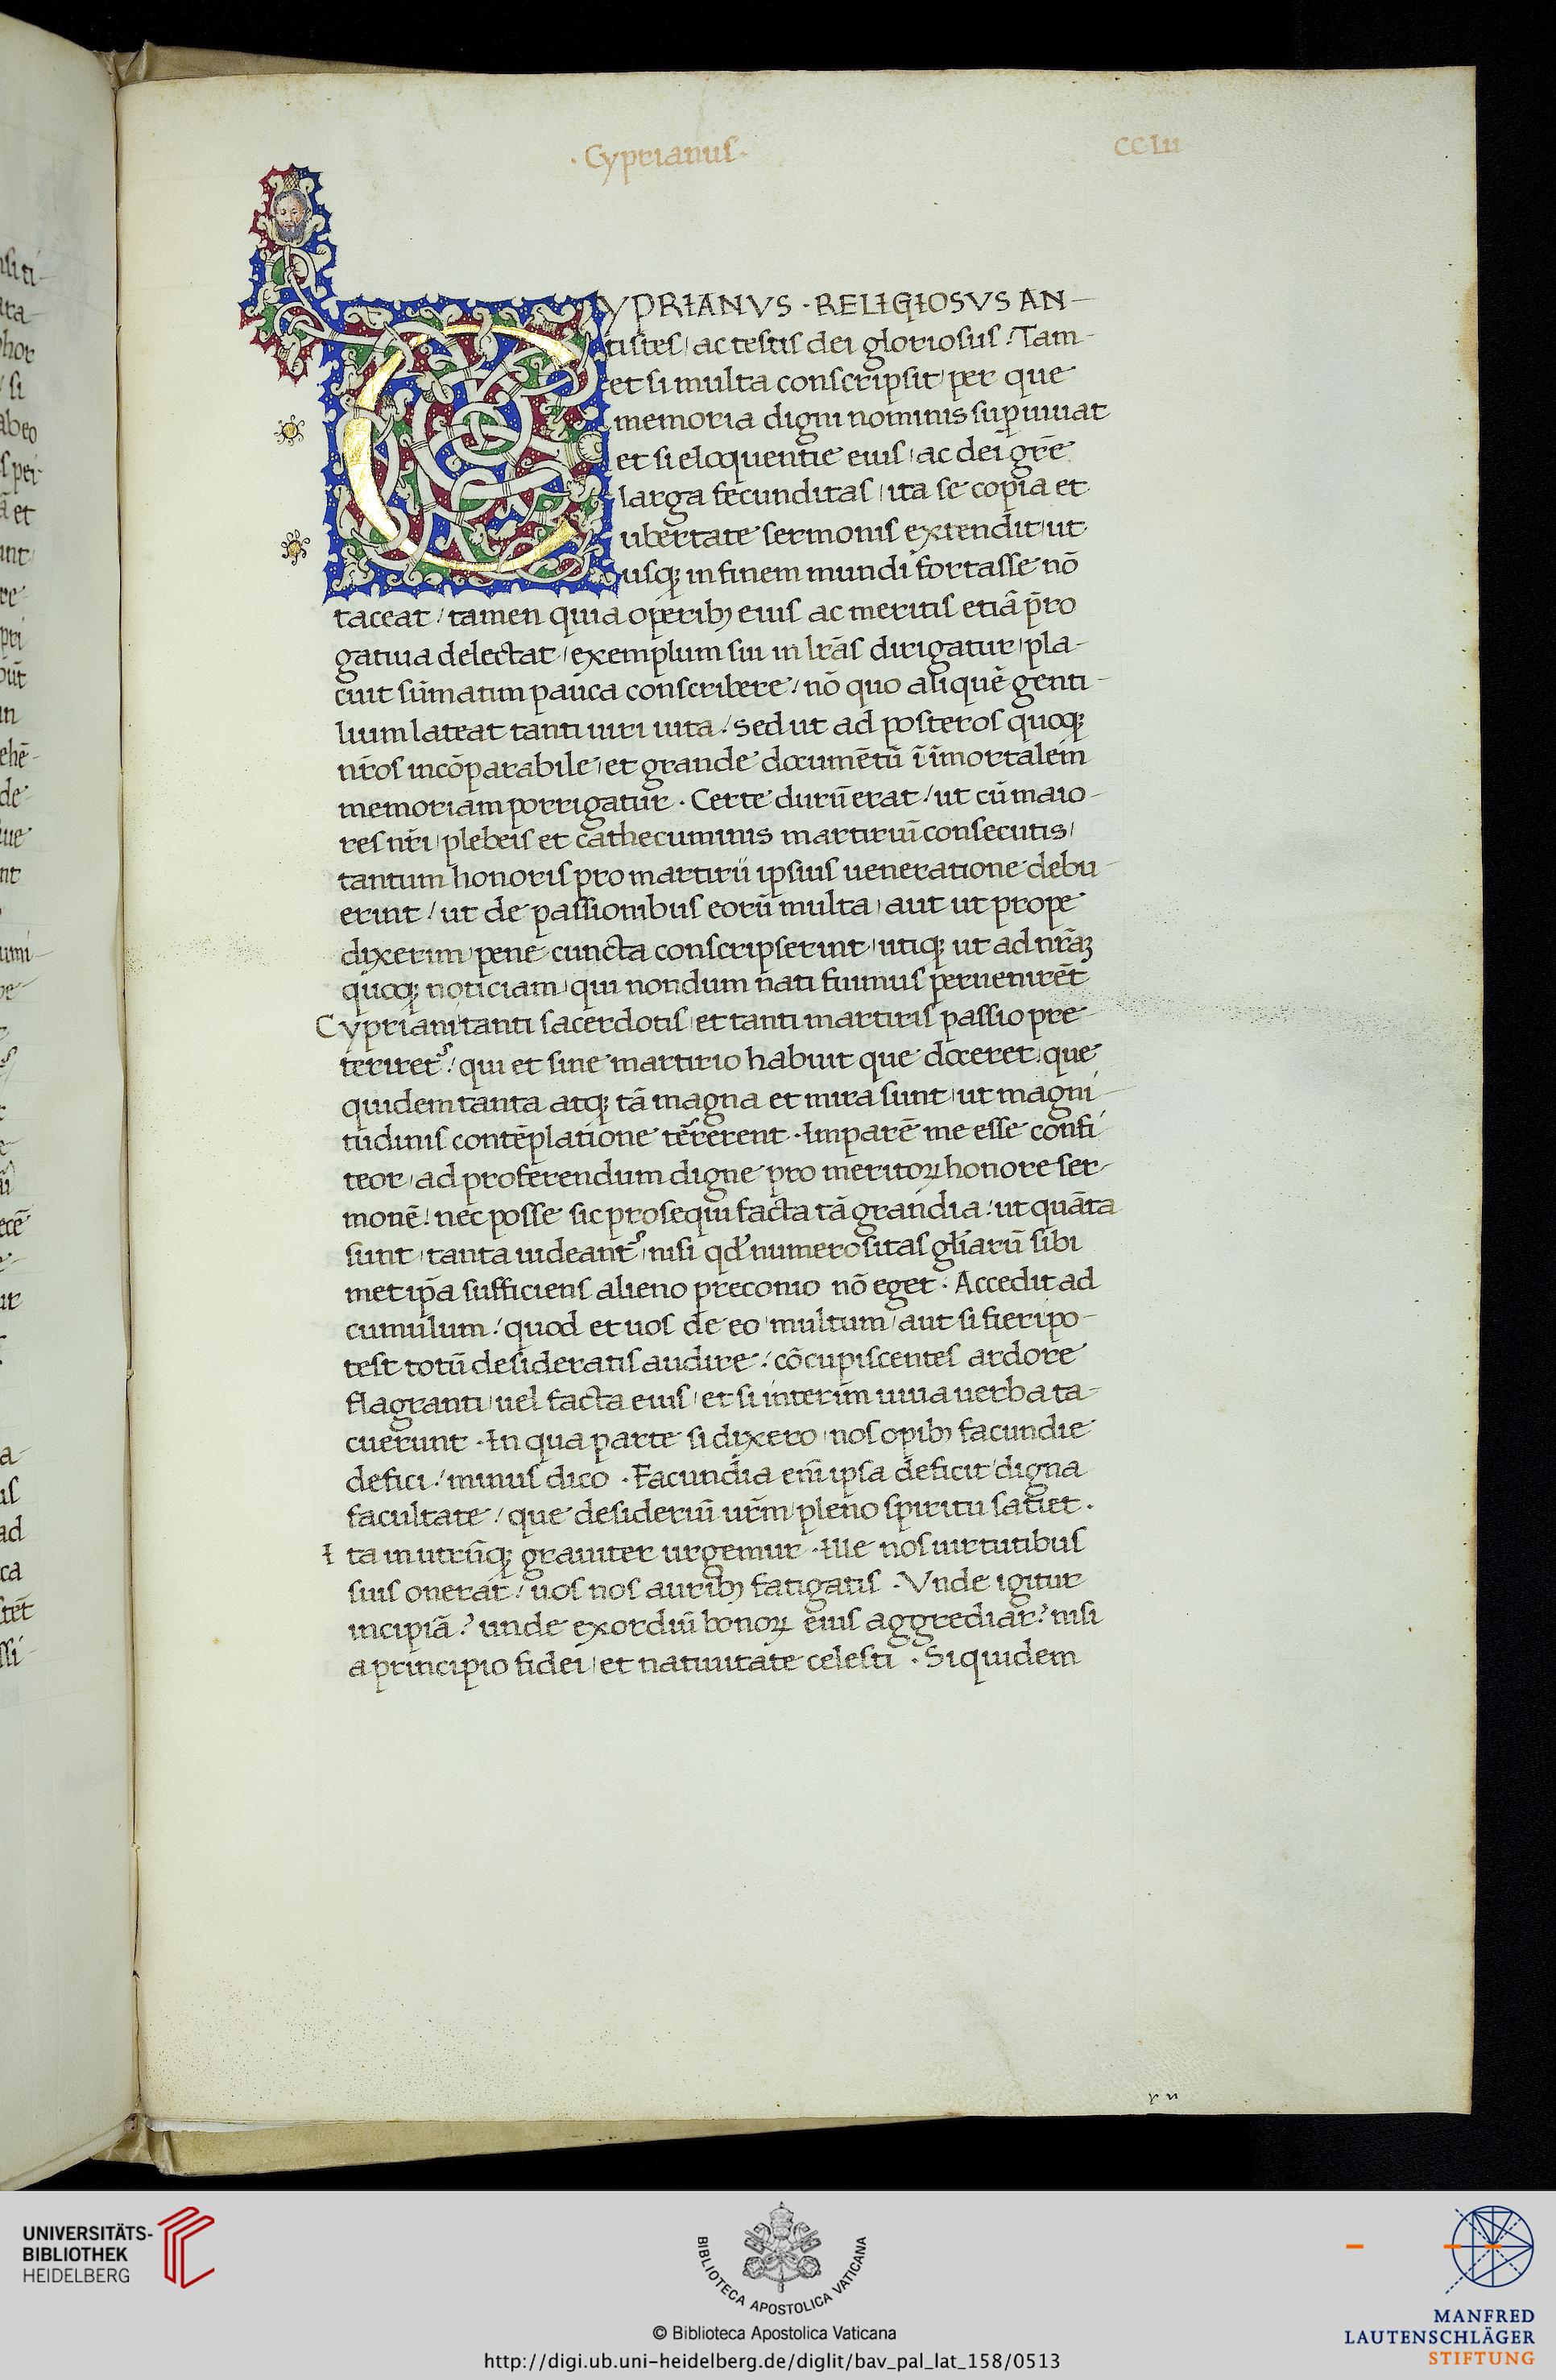 · Cyprianus ·
CCLII
CYPRIANVS · RELIGIOSVS AN-
tistes / ac testis dei gloriosus / Tam-
et si multa conscripsit / per que
memoria digni nominis supuiuat
et si eloquentie eius / ac dei grē
larga fecunditas / ita se copia et
ubertate sermonis extendit / ut
usq; in finem mundi fortasse nō
taceat / tamen quia operib; eius ac meritis etiā p̄ro
gatiua delectat / exemplum sui in lr̄as dirigatur / pla-
cuit sūmatim pauca conscribere / nō quo aliquē genti-
lium lateat tanti uiri uita / sed ut ad posteros quoq;
nr̄os incōparabile / et grande documētū ī īmortalem
memoriam porrigatur · Certe durū erat / ut cū maio-
res nr̄i / plebeis et cathecuminis martiriū consecutis /
tantum honoris pro martirii ipsius ueneratione debu-
erint / ut de passionibus eorū multa / aut ut prope
dixerim / pene cuncta conscripserint / utiq; ut ad nr̄aꝫ
quoq; noticiam / qui nondum nati fuimus peruenirēt
Cypriani tanti sacerdotis / et tanti martiris passio pre-
teriret᷑ / qui et sine martirio habuit que doceret / que
quidem tanta atq; tā magna et mira sunt / ut magni-
tudinis contēplatione tērerent · Imparē me esse confi-
teor / ad proferendum digne pro meritoꝝ honore ser-
monē / nec posse sic prosequi facta tā grandia / ut quāta
sunt / tanta uideant᷑ / nisi qd̓ numerositas gl̄iarū sibi
met ip̄a sufficiens alieno preconio nō eget · Accedit ad
cumulum / quod et uos de eo / multum / aut si fieri po-
test totū desideratis audire / cōcupiscentes ardore
flagranti / uel facta eius / et si interim uiua uerba ta-
cuerunt · In qua parte si dixero / nos opib; facundie
defici / minus dico · Facundia enī ipsa deficit / digna
facultate / que desideriū ur̄m / pleno spiritu satiet ·
Ita in utrūq; grauiter urgemur · Ille nos uirtutibus
suis onerat / uos nos aurib; fatigatis · Vnde igitur
incipiā? unde exordiū bonoꝝ eius aggrediar? nisi
a principio fidei / et natiuitate celesti · Siquidem
UNIVERSITÄTS-
BIBLIOTHEK
HEIDELBERG
BIBLIOTECA APOSTOLICA VATICANA
© Biblioteca Apostolica Vaticana
http://digi.ub.uni-heidelberg.de/diglit/bav_pal_lat_158/0513
MANFRED
LAUTENSCHLÄGER
STIFTUNG